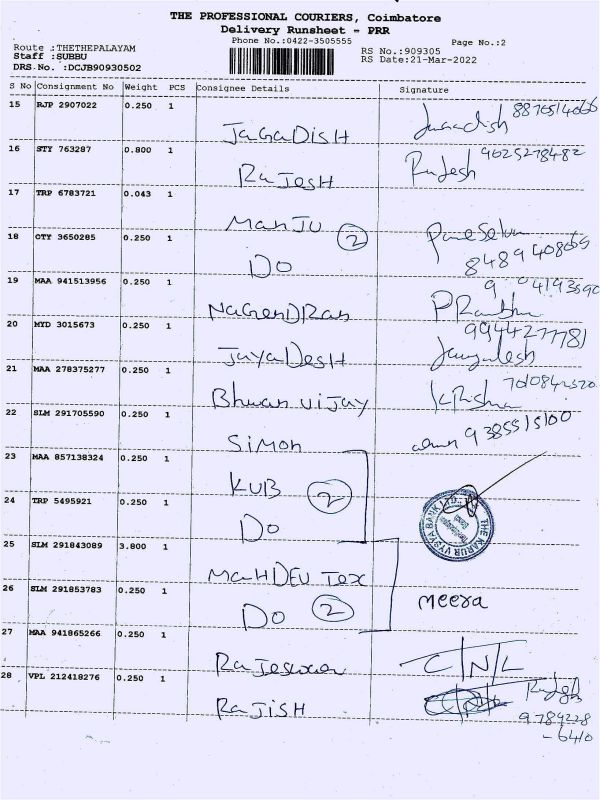 THE PROFESSIONAL COURIERS, Coimbatore
Delivery Runsheet - PRR
Phone No.:0422-3505555
Page No.:2
Route :THETHEPALAYAM
Staff :SUBBU
DRS.No. :DCJB90930502
RS No.:909305
RS Date:21-Mar-2022
S No Consignment No Weight PCS Consignee Details Signature
15 RJP 2907022 0.250 1 JAGADISH Jagadish
16 STY 763287 0.800 1 RAJESH Rajesh 9625278482
17 TRP 6783721 0.043 1 MANJU 2
18 OTY 3650285 0.250 1 DO 8489408069
19 MAA 941513956 0.250 1 NAGENDRAN
20 MYD 3015673 0.250 1 JAYADESH 9944277781
21 MAA 278375277 0.250 1 Bhuvan vijay
22 SLM 291705590 0.250 1 SIMON 9385515100
23 MAA 857138324 0.250 1 KUB 2
24 TRP 5495921 0.250 1 DO THE KARUR VYSYA BANK LTD.
25 SLM 291843089 3.800 1 MAHDEV Tex
26 SLM 291853783 0.250 1 DO 2 meera
27 MAA 941865266 0.250 1 RAJeswari C/N/L
28 VPL 212418276 0.250 1 RAJISH
9789228
-6410